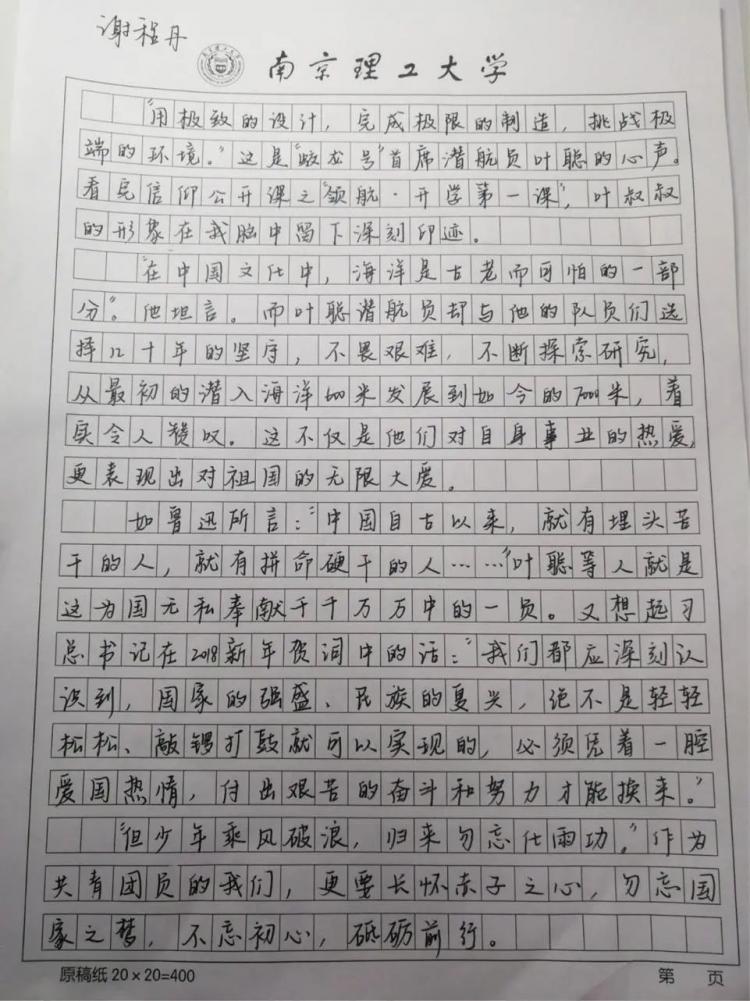 谢程丹
南京理工大学
“用极致的设计，完成极限的制造，挑战极
端的环境。”这是“蛟龙号”首席潜航员叶聪的心声。
看完信仰公开课之“领航·开学第一课”，叶叔叔
的形象在我脑中留下深刻印迹。
“在中国文化中，海洋是古老而可怕的一部
分”。他坦言。而叶聪潜航员却与他的队员们选
择几十年的坚守，不畏艰难，不断探索研究，
从最初的潜入海洋600米发展到如今的7000米，着
实令人赞叹。这不仅是他们对自身事业的热爱，
更表现出对祖国的无限大爱。
如鲁迅所言：“中国自古以来，就有埋头苦
干的人，就有拼命硬干的人……”叶聪等人就是
这为国无私奉献千千万万中的一员。又想起习
总书记在2018新年贺词中的话：“我们都应深刻认
识到，国家的强盛、民族的复兴，绝不是轻轻
松松、敲锣打鼓就可以实现的，必须凭着一腔
爱国热情，付出艰苦的奋斗和努力才能换来。”
“但少年乘风破浪，归来勿忘化雨功。”作为
共青团员的我们，更要长怀赤子之心，勿忘国
家之梦，不忘初心，砥砺前行。
原稿纸20×20=400
第 页